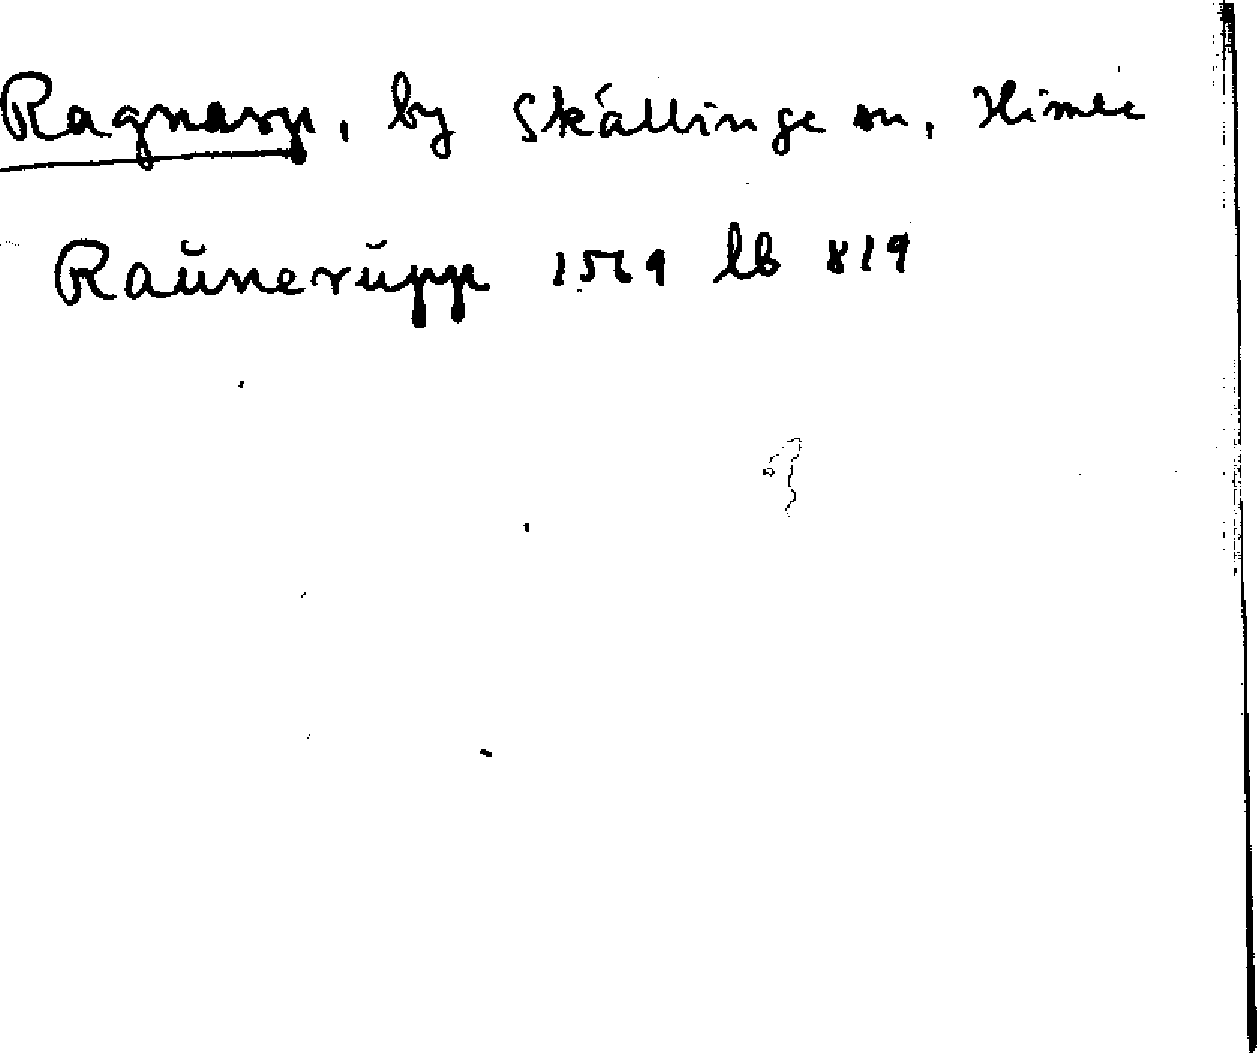 Ragnarp, by Skällinge sn, Himle
Raŭnerŭpp 1569 lb 819